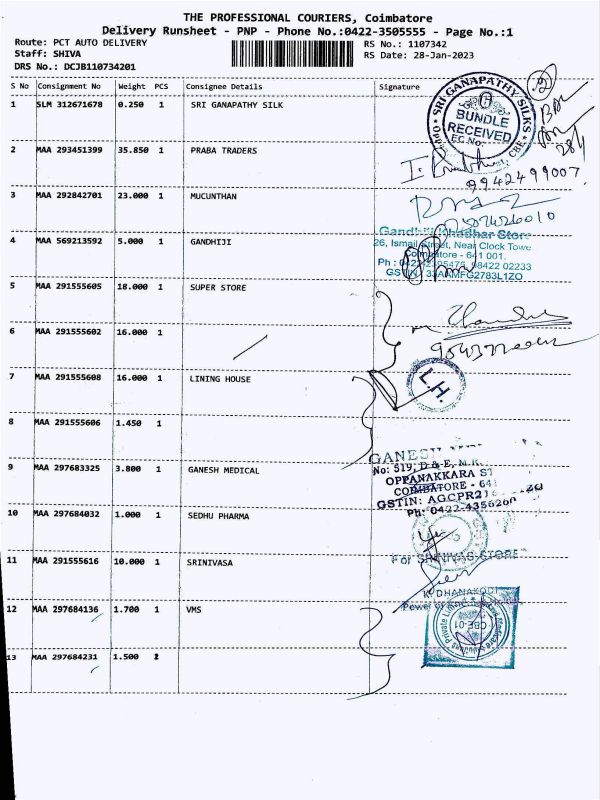 THE PROFESSIONAL COURIERS, Coimbatore
Delivery Runsheet - PNP - Phone No.:0422-3505555 - Page No.:1
Route: PCT AUTO DELIVERY
Staff: SHIVA
DRS No.: DCJB110734201
RS No.: 1107342
RS Date: 28-Jan-2023
S No Consignment No Weight PCS Consignee Details Signature
1 SLM 312671678 0.250 1 SRI GANAPATHY SILK
SRI GANAPATHY SILKS
BUNDLE
RECEIVED
CBE.
2 MAA 293451399 35.850 1 PRABA TRADERS
9942499007
3 MAA 292842701 23.000 1 MUCUNTHAN
4 MAA 569213592 5.000 1 GANDHIJI
Gandhiji Khadhar Store
26, Ismail Street, Near Clock Towe
Coimbatore - 641 001.
98422 02233
33AAMFG2783L1ZO
5 MAA 291555605 18.000 1 SUPER STORE
6 MAA 291555602 16.000 1
7 MAA 291555608 16.000 1 LINING HOUSE
L.H.
8 MAA 291555606 1.450 1
9 MAA 297683325 3.800 1 GANESH MEDICAL
GANESH
No: 519, D & E, N.R.
OPPANAKKARA ST
COIMBATORE - 641
GSTIN: AGCPR
Ph: 0422-4356200
10 MAA 297684032 1.000 1 SEDHU PHARMA
11 MAA 291555616 10.000 1 SRINIVASA
For SRINIVAS STORE
12 MAA 297684136 1.700 1 VMS
CBE-01
13 MAA 297684231 1.500 1